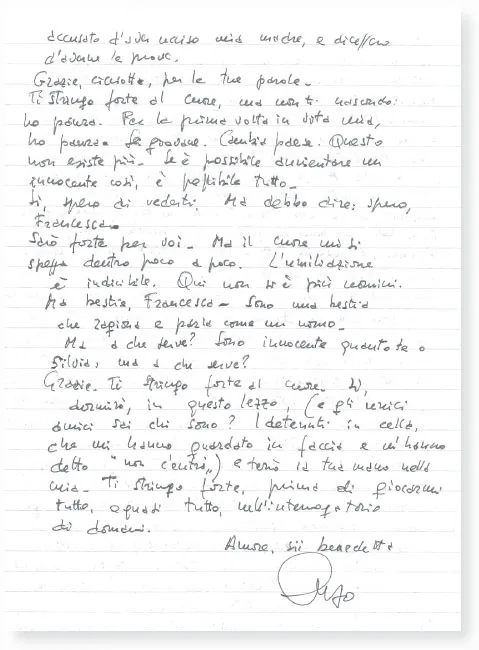 accusato d'aver ucciso mia madre, e dicessero
d'averne le prove.
Grazie, cicciotta, per le tue parole.
Ti stringo forte al cuore, ma non ti nascondo:
ho paura. Per la prima volta in vita mia,
ho paura. Sei giovane. Cambia paese. Questo
non esiste più. Se è possibile annientare un
innocente così, è possibile tutto.
Sì, spero di vederti. Ma debbo dire: spero,
Francesca.
Sarò forte per voi. Ma il cuore mi si
spezza dentro poco a poco. L'umiliazione
è indicibile. Qui non si è più uomini.
Ma bestie, Francesca. Sono una bestia
che ragiona e parla come un uomo.
Ma a che serve? Sono innocente quanto te o
Silvia, ma a che serve?
Grazie. Ti stringo forte al cuore. Sì,
dormirò, in questo lezzo, (e gli unici
amici sai chi sono? I detenuti in cella,
che mi hanno guardato in faccia e m'hanno
detto "non c'entri") e terrò la tua mano nella
mia. Ti stringo forte, prima di giocarmi
tutto, o quasi tutto, nell'interrogatorio
di domani.
Amore, sii benedetta